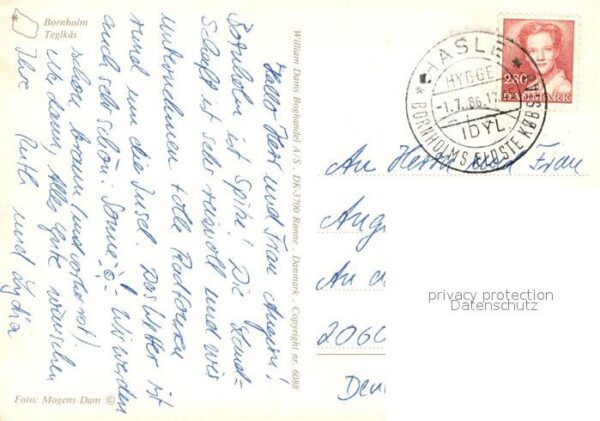 Bornholm
Teglkås
Hallo Herr und Frau
Bornholm ist Spitze! Die Land-
schaft ist sehr reizvoll und wir
unternehmen tolle Radtouren
rund um die Insel. Das Wetter ist
auch sehr schön: Sonne! Wir werden
schön braun (und verbrannt).
bis dann, Alles Gute wünschen
Ihre Ruth und Lydia
Foto: Mogens Dam ©
William Dams Boghandel A/S . DK-3700 Rønne . Danmark . Copyright nr. 6088
HASLE
HYGGE
-1.7.86.17
IDYL
BORNHOLMS ÆLDSTE KØBSTAD
230
DANMARK
An Herrn und Frau
An
2060
privacy protection
Datenschutz